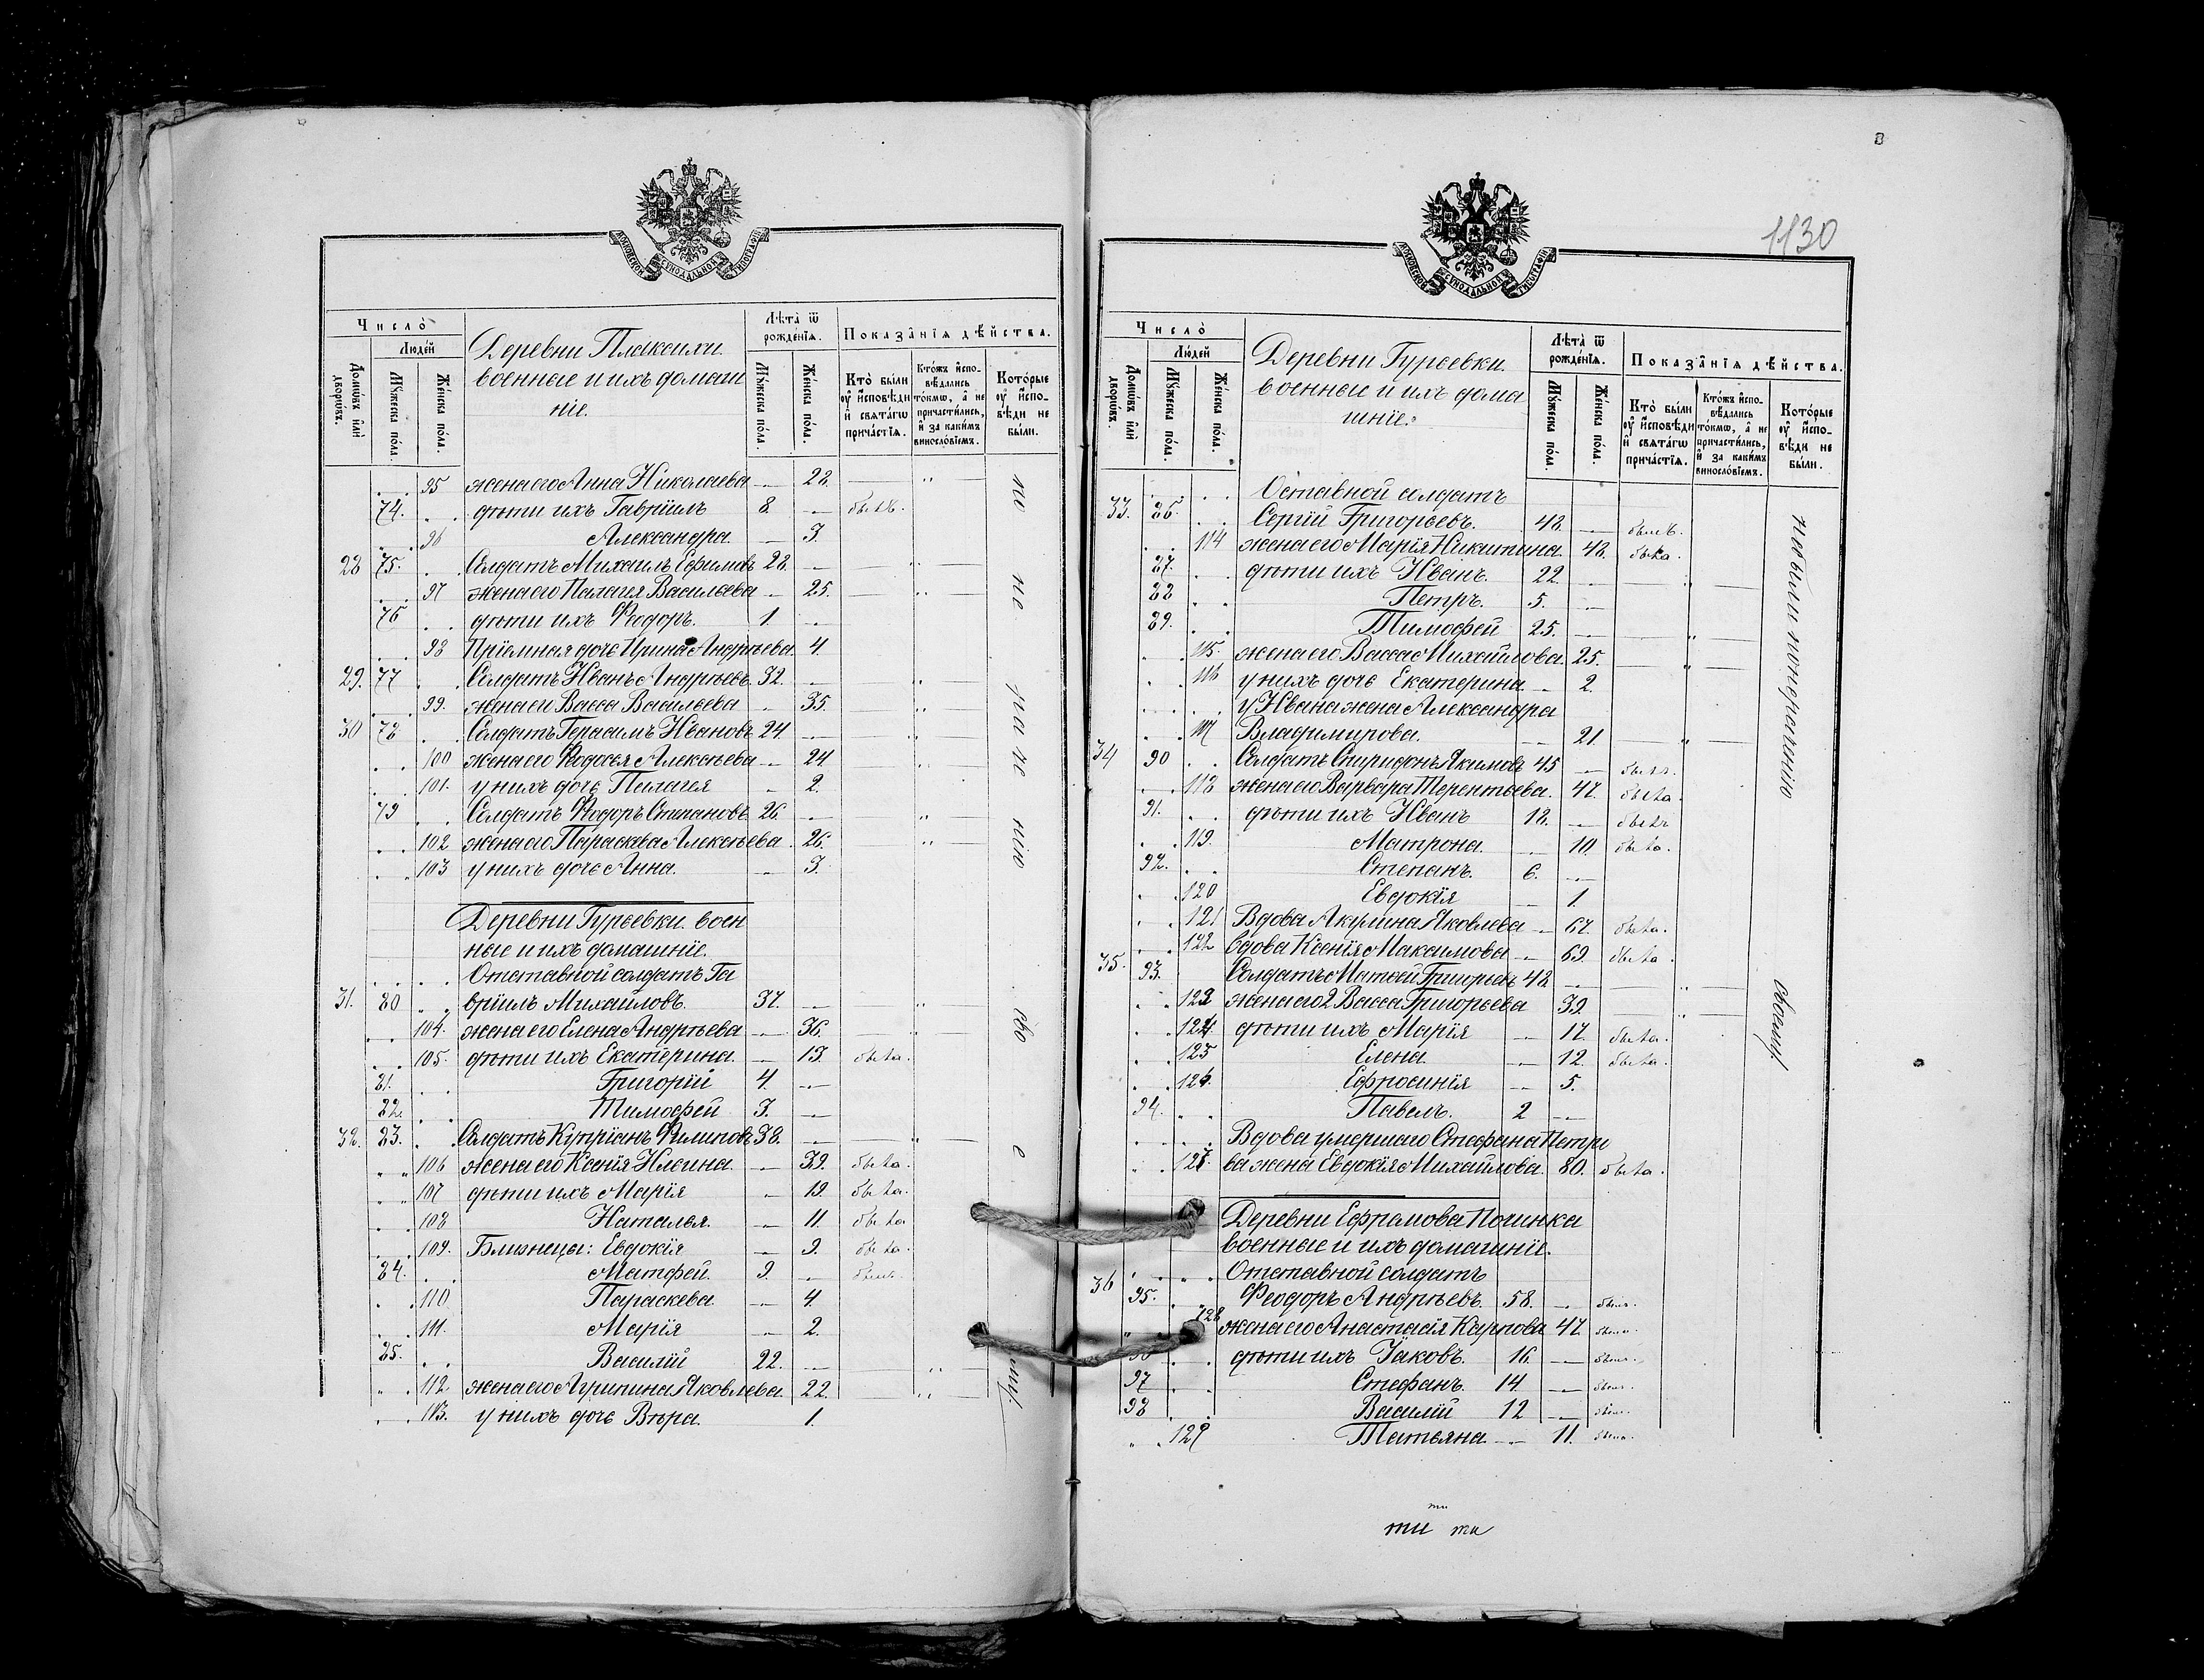 МОСКОВСКОЙ СѴНОДАЛЬНОЙ ТИПОГРАФІИ
Число̀
Людей
Домѡвъ и҆лѝ дворѡвъ.
Мꙋ́жеска по́ла.
Же́нска по́ла.
Деревни Плаксихи
военные и ихъ домаш
ніе.
Лѣта̀ ѿ рожде́нїѧ.
Мꙋ́жеска по́ла.
Же́нска по́ла.
Показа̑нїѧ дѣ́йства.
Кто̀ бы́ли ᲂу҆ и҆сповѣ́ди и҆ свѧта́гѡ прича́стїѧ.
Кто́жъ и҆спо-вѣ́дались то́кмѡ, а҆ не причасти́лись, и҆ за каки́мъ виносло́вїемъ.
Кото́рые ᲂу҆ и҆спо-вѣ́ди не бы́ли.
95 жена его Анна Николаева — 28. — „ —
74. дѣти ихъ Гавріилъ 8. — былъ.
96 Александра. — 3.
28 75. Солдатъ Михаилъ Ефимовъ 28. — „ —
97 жена его Палагея Васильева — 25. — „ —
76 дѣти ихъ Ѳеодоръ. 1 —
98 Пріемная дочь Ирина Андрѣева. 4.
29. 77 Солдатъ Иванъ Андрѣевъ. 32. — „ —
99. жена его Васса Васильева — 35. — „ —
30 78 Солдатъ Герасимъ Ивановъ 24. — „ —
100 жена его Ѳеодосья Алексѣева — 24. — „ —
101. у нихъ дочь Пелагея — 2.
79 Солдатъ Ѳеодоръ Степановъ 26. — „ —
102 жена его Параскева Алексѣева. 26. — „ —
103 у нихъ дочь Анна. — 3.
Деревни Гурьевки воен
ные и ихъ домашніе.
Отставной солдатъ Га
31. 80 вріилъ Михайловъ. 37. — „ —
104. жена его Елена Андрѣева — 36. — „ —
105. дѣти ихъ Екатерина. — 13. была.
81. Григорій 4. —
82. Тимофей 3. —
32. 83. Солдатъ Купріанъ Филиповъ 38. — „ —
106 жена его Ксенія Ильина. — 39. была.
107 дѣти ихъ Марія — 19. была.
108 Наталья. — 11. была
109. Близнецы: Евдокія — 9. была.
84. Матфей. 9. — былъ.
110 Параскева. — 4.
111. Марія — 2.
85. Василій 22. — „ —
112 жена его Агрипина Яковлева. 22. — „ —
113. у нихъ дочь Вѣра. 1.
МОСКОВСКОЙ СѴНОДАЛЬНОЙ ТИПОГРАФІИ
1130
Число̀
Люде́й
Домѡвъ и҆лѝ дворѡвъ.
Мꙋ́жеска по́ла.
Же́нска по́ла.
Деревни Гурьевки.
военные и ихъ дома
шніе.
Лѣта̀ ѿ рожде́нїѧ.
Мꙋ́жеска по́ла.
Же́нска по́ла.
Показа̑нїѧ дѣ́йства.
Кто̀ бы́ли ᲂу҆ и҆сповѣ́ди и҆ свѧта́гѡ прича́стїѧ.
Кто́жъ и҆спо-вѣ́дались то́кмѡ, а҆ не причасти́лись, и҆ за каки́мъ виносло́вїемъ.
Кото́рые ᲂу҆ и҆спо-вѣ́ди не бы́ли.
не были по нерачнію своему.
Отставной солдатъ
33. 86. Сергій Григорьевъ. 48. — былъ.
114 жена его Марія Никитина. 48. была.
87. дѣти ихъ Иванъ. 22. — „ —
88 Петръ. 5. —
89. Тимофей 25. — „ —
115. жена его Васса Михайлова. 25. — „ —
116 у нихъ дочь Екатерина. — 2.
у Ивана жена Александра
117 Владимирова. — 21. — „ —
34 90 Солдатъ Спиридонъ Якимовъ 45 — былъ.
118 жена его Варвара Терентьева. 47. была.
91. дѣти ихъ Иванъ 18. — былъ
119. Матрона. — 10. была.
92. Степанъ. 6. —
120 Евдокія — 1.
121 Вдова Акулина Яковлева — 67. была.
122 Вдова Ксенія Максимова — 69. была.
35. 93. Солдатъ Матвей Григорьевъ 48. — „ —
123 жена его 2 Васса Григорьева 39. — „ —
124. дѣти ихъ Марія — 17. была.
125 Елена. — 12. была.
126. Ефросинія — 5.
94. Павелъ. 2 —
Вдова умершаго Стефана Петро
127. ва жена Евдокія Михайлова. 80. была.
Деревни Ефремова Починка
военные и ихъ домашніе.
Отставной солдатъ
36 95. Ѳеодоръ Андрѣевъ. 58. — былъ.
128 жена его Анастасія Карпова 47. была.
96 дѣти ихъ Іаковъ. 16. — былъ.
97 Стефанъ. 14. — былъ.
98 Василій 12 — былъ.
129 Татьяна — 11. была.
ти
ти ти